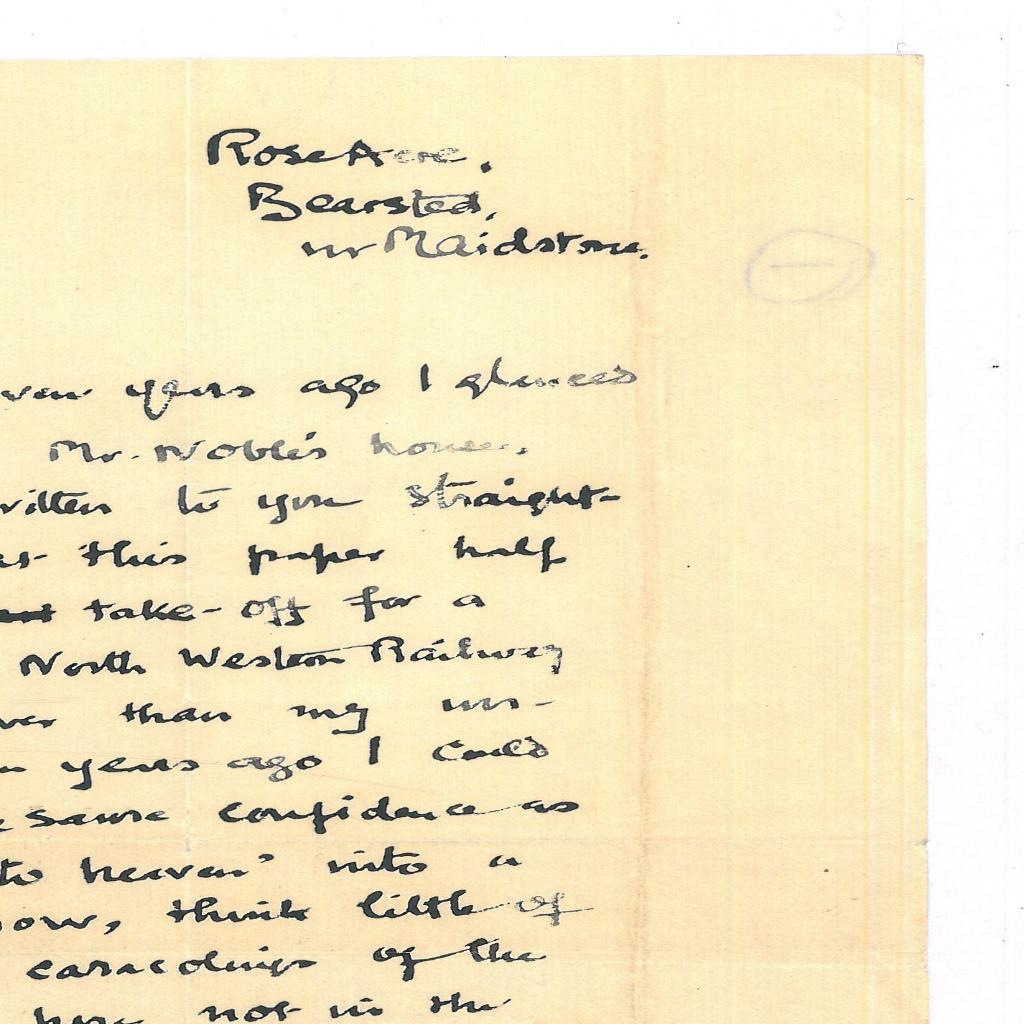 Rose Acre,
Bearsted,
nr Maidstone.
years ago I glanced
Mr. Noble's house,
written to you straight-
this paper half
take-off for a
North Western Railway
than my un-
years ago I could
same confidence as
to heaven' into a
now, think little of
caracolings of the
here not in the